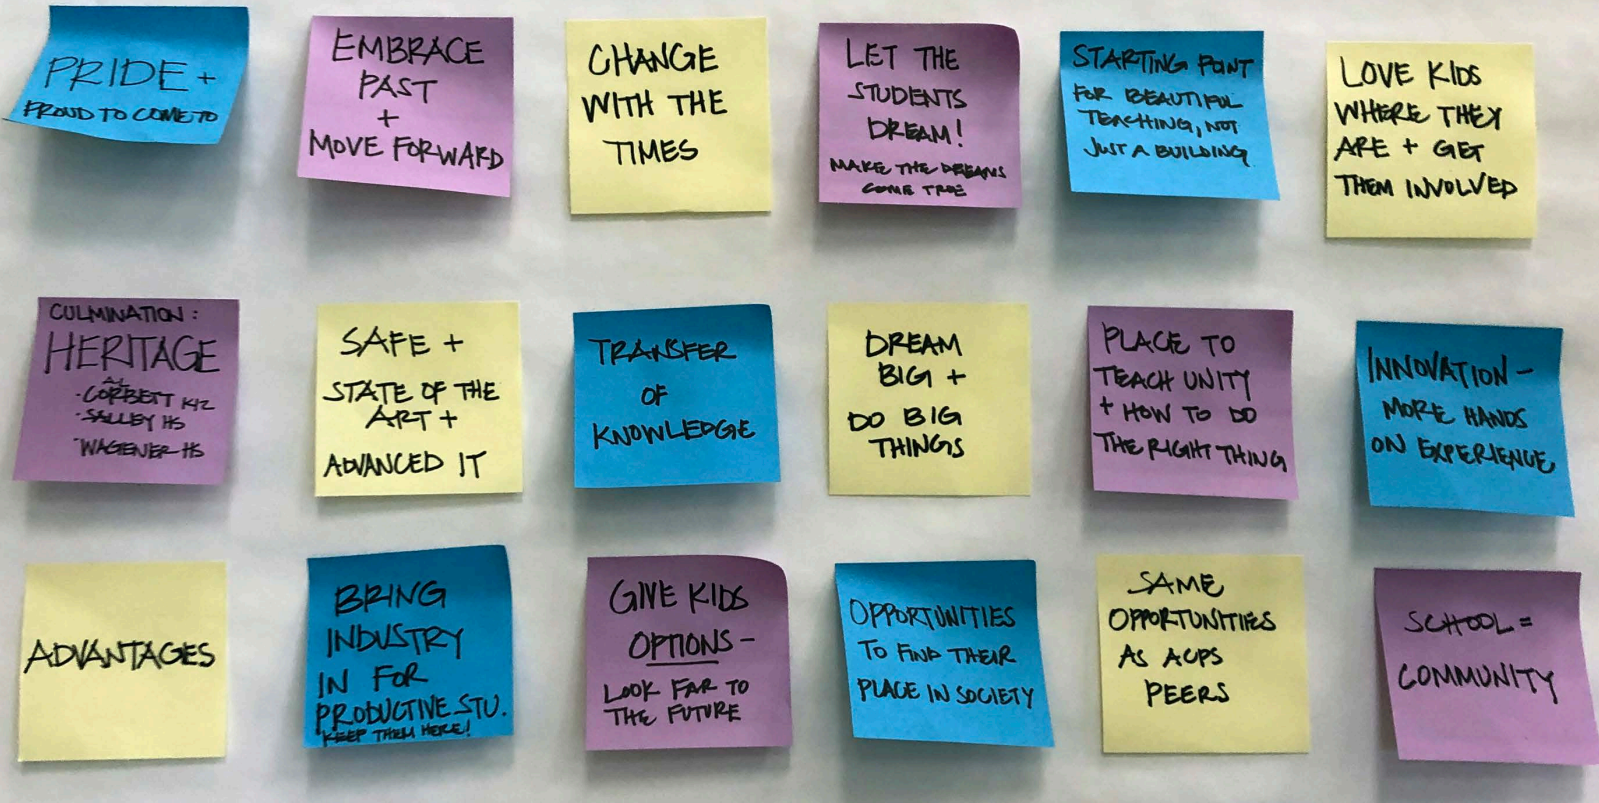 PRIDE +
PROUD TO COME TO
EMBRACE
PAST
+
MOVE FORWARD
CHANGE
WITH THE
TIMES
LET THE
STUDENTS
DREAM!
MAKE THE DREAMS
COME TRUE
STARTING POINT
FOR BEAUTIFUL
TEACHING, NOT
JUST A BUILDING
LOVE KIDS
WHERE THEY
ARE + GET
THEM INVOLVED
CULMINATION:
HERITAGE
AL
· CORBETT K12
· SALLEY HS
· WAGENER HS
SAFE +
STATE OF THE
ART +
ADVANCED IT
TRANSFER
OF
KNOWLEDGE
DREAM
BIG +
DO BIG
THINGS
PLACE TO
TEACH UNITY
+ HOW TO DO
THE RIGHT THING
INNOVATION -
MORE HANDS
ON EXPERIENCE
ADVANTAGES
BRING
INDUSTRY
IN FOR
PRODUCTIVE STU.
KEEP THEM HERE!
GIVE KIDS
OPTIONS -
LOOK FAR TO
THE FUTURE
OPPORTUNITIES
TO FIND THEIR
PLACE IN SOCIETY
SAME
OPPORTUNITIES
AS ACPS
PEERS
SCHOOL =
COMMUNITY